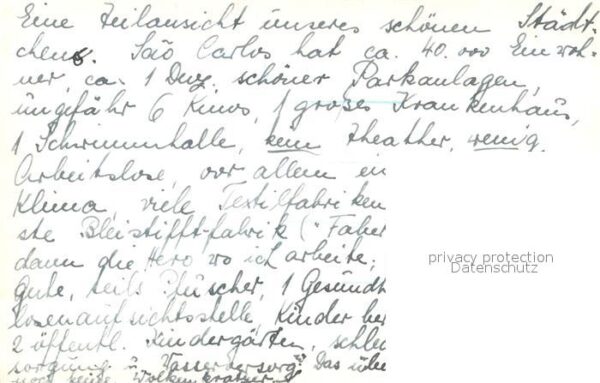 Eine Teilansicht unseres schönen Städt-
chens. São Carlos hat ca. 40.000 Einwoh-
ner, ca. 1 Duz. schöner Parkanlagen,
ungefähr 6 Kinos, 1 großes Krankenhaus,
1 Schwimmhalle, kein Theather, wenig
Arbeitslose, vor allem ein
Klima, viele Textilfabriken
ste Bleistifft-fabrik ("Faber
dann die Hero wo ich arbeite;
gute, teils 1 Gesundh
losenaufsichtsstelle, Kinder
2 öffentl. Kindergärten, schle
sorgung u. Wasserversorg. Das übe
noch keine Wolkenkratzer
privacy protection
Datenschutz